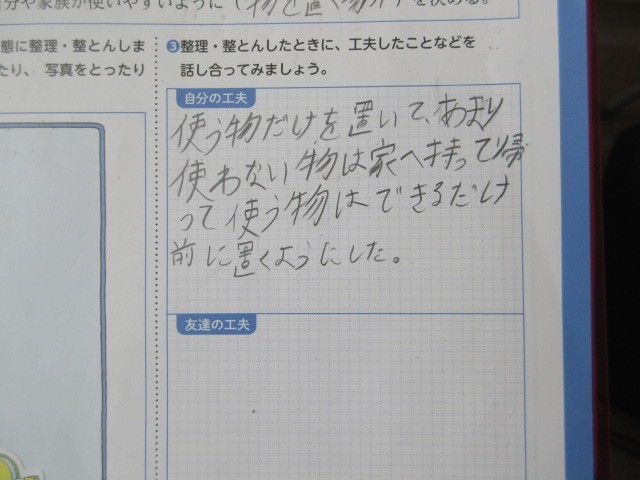 分や家族が使いやすいように（物を置く場所）を決める。
態に整理・整とんしま
たり、写真をとったり
❸整理・整とんしたときに、工夫したことなどを
話し合ってみましょう。
自分の工夫
使う物だけを置いて、あまり
使わない物は家へ持って帰
って使う物はできるだけ
前に置くようにした。
友達の工夫